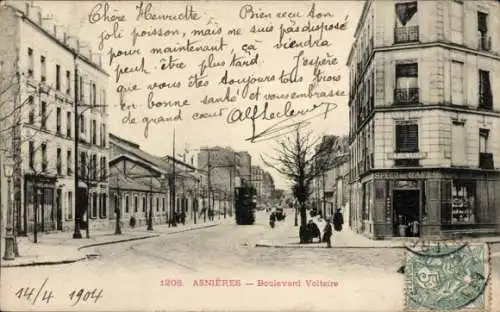 Chère Henriette Bien reçu son
joli poisson, mais ne suis pas disposé
pour maintenant, ça viendra
peut être plus tard. J'espère
que vous êtes toujours tous trois
en bonne santé et vous embrasse
de grand cœur
1208. ASNIÈRES — Boulevard Voltaire
14/4 1904